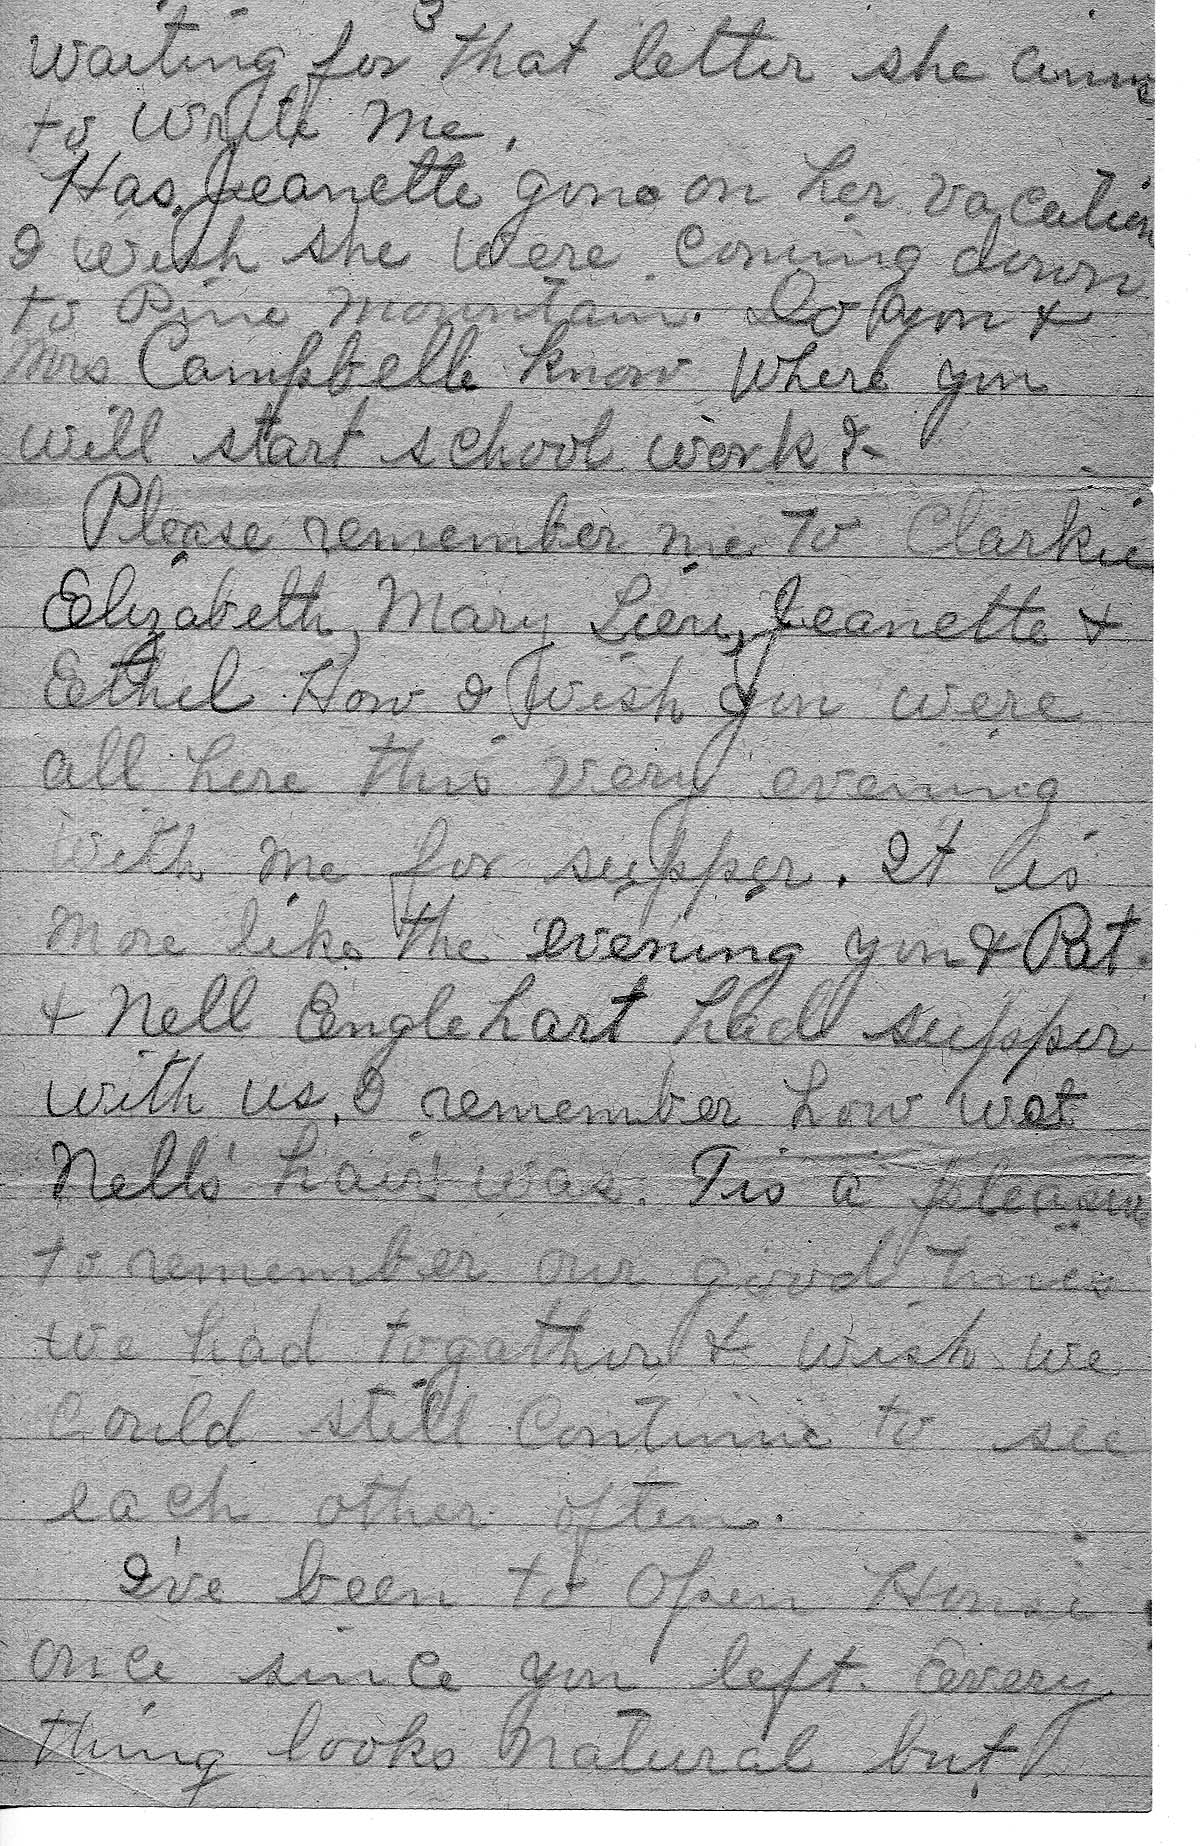 3
waiting for that letter she
to write me.
Has Jeanette gone on her vacation
I wish she were coming down
to Pine Mountain. Do you &
Mrs Campbell know where you
will start school work &
Please remember me to Clarkie
Elizabeth, Mary Jeanette &
Ethel. How I wish you were
all here this very evening
with me for supper. It is
more like the evening you & Pat.
& Nell Englehart had supper
with us. I remember how wet
Nell's hair was. Tis a pleasure
to remember our good times
we had together & wish we
could still continue to see
each other often.
I've been to Open House
once since you left. Every
thing looks natural but